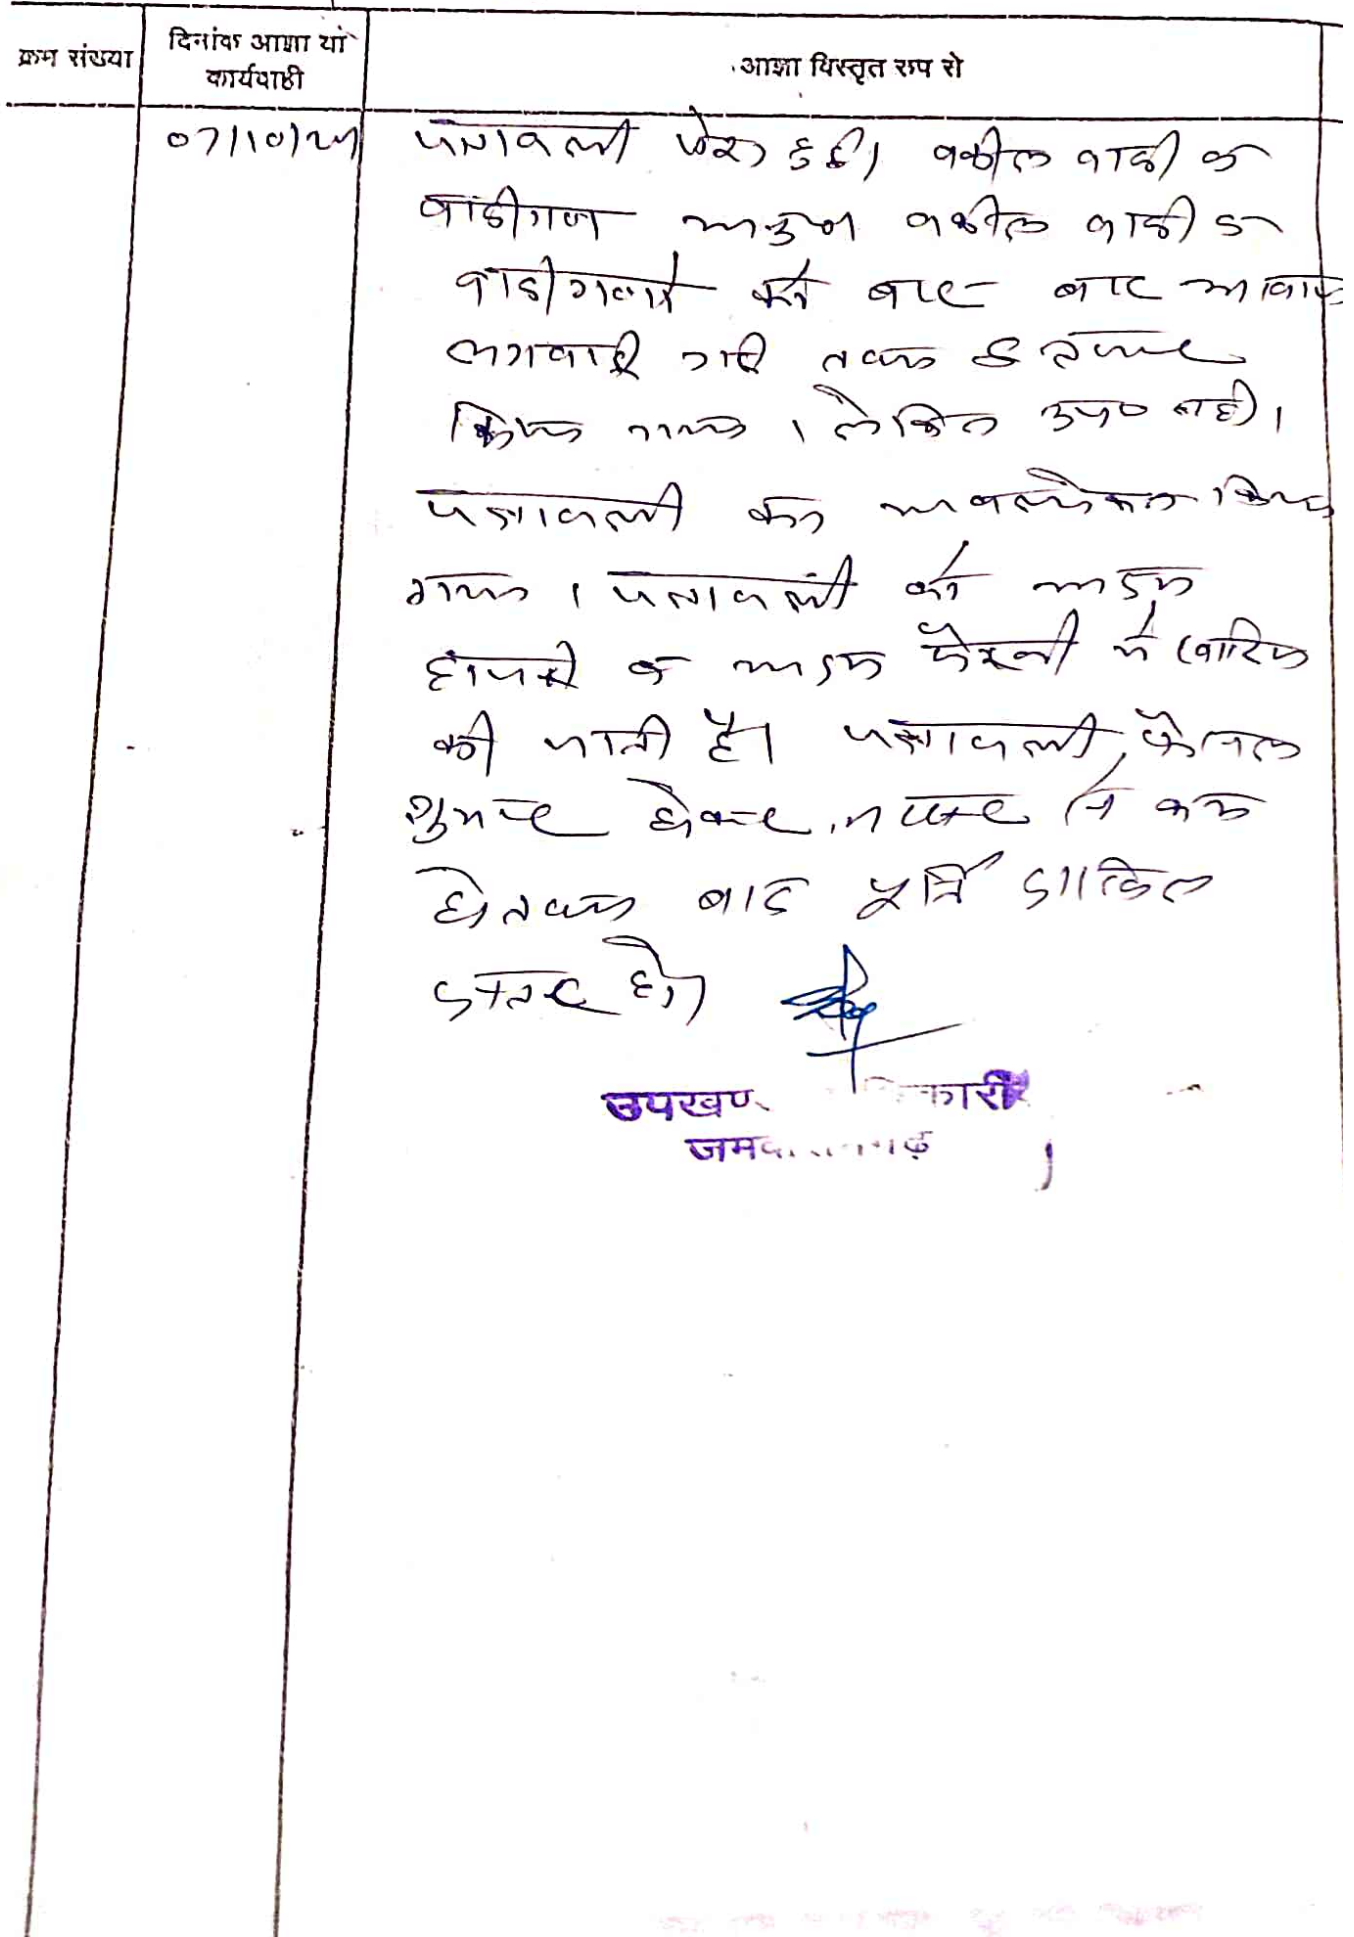 क्रम संख्या
दिनांक आज्ञा या कार्यवाही
आज्ञा विस्तृत रूप से
पत्रावली पेश हुई। वकील वादी व
वादीगण वकील वादी व
वादीगण को बार बार आवाज
लगवाई गई तथा इन्तजार
किया गया। लेकिन उप० नही।
पत्रावली का अवलोकन किया
गया। पत्रावली को अदम
हाजरी व अदम पैरवी में खारिज
की जाती है। पत्रावली फैसल
शुमार होकर नम्बर से कम
हो तथा बाद पूर्ति दाखिल
दफ्तर हो।
उपखण कारी